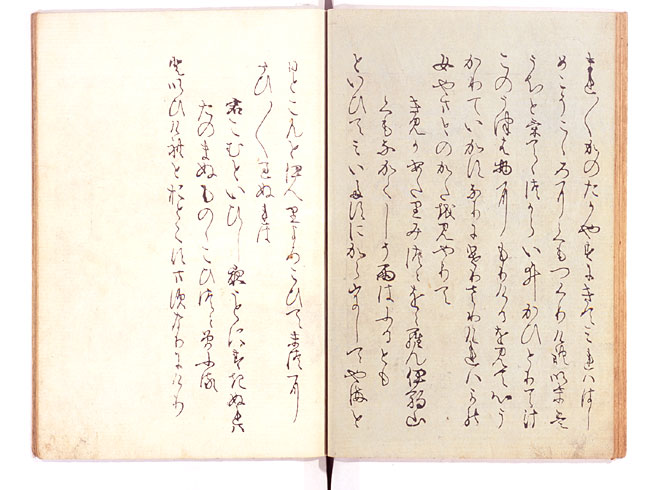 まれ〳〵かのたかやすにきてみれははし
めこそこゝろにくもつくりけれいまは
うちとけてゝつからいゐかひとりてけ
このうつは物にもりけるを見て心う
かりていかすなりにけりさりけれはかの
女やまとのかたを見やりて
きみかあたりみつゝをゝらん伊駒山
くもなかくしそ雨はふるとも
といひてみいたすにからうしてやまと
ひとこんといへりよろこひてまつに
たひ〳〵すきぬれは
君こむといひし夜ことにすきぬれは
たのまぬものゝこひつゝそふる
といひけれとおとこすますなりにけり